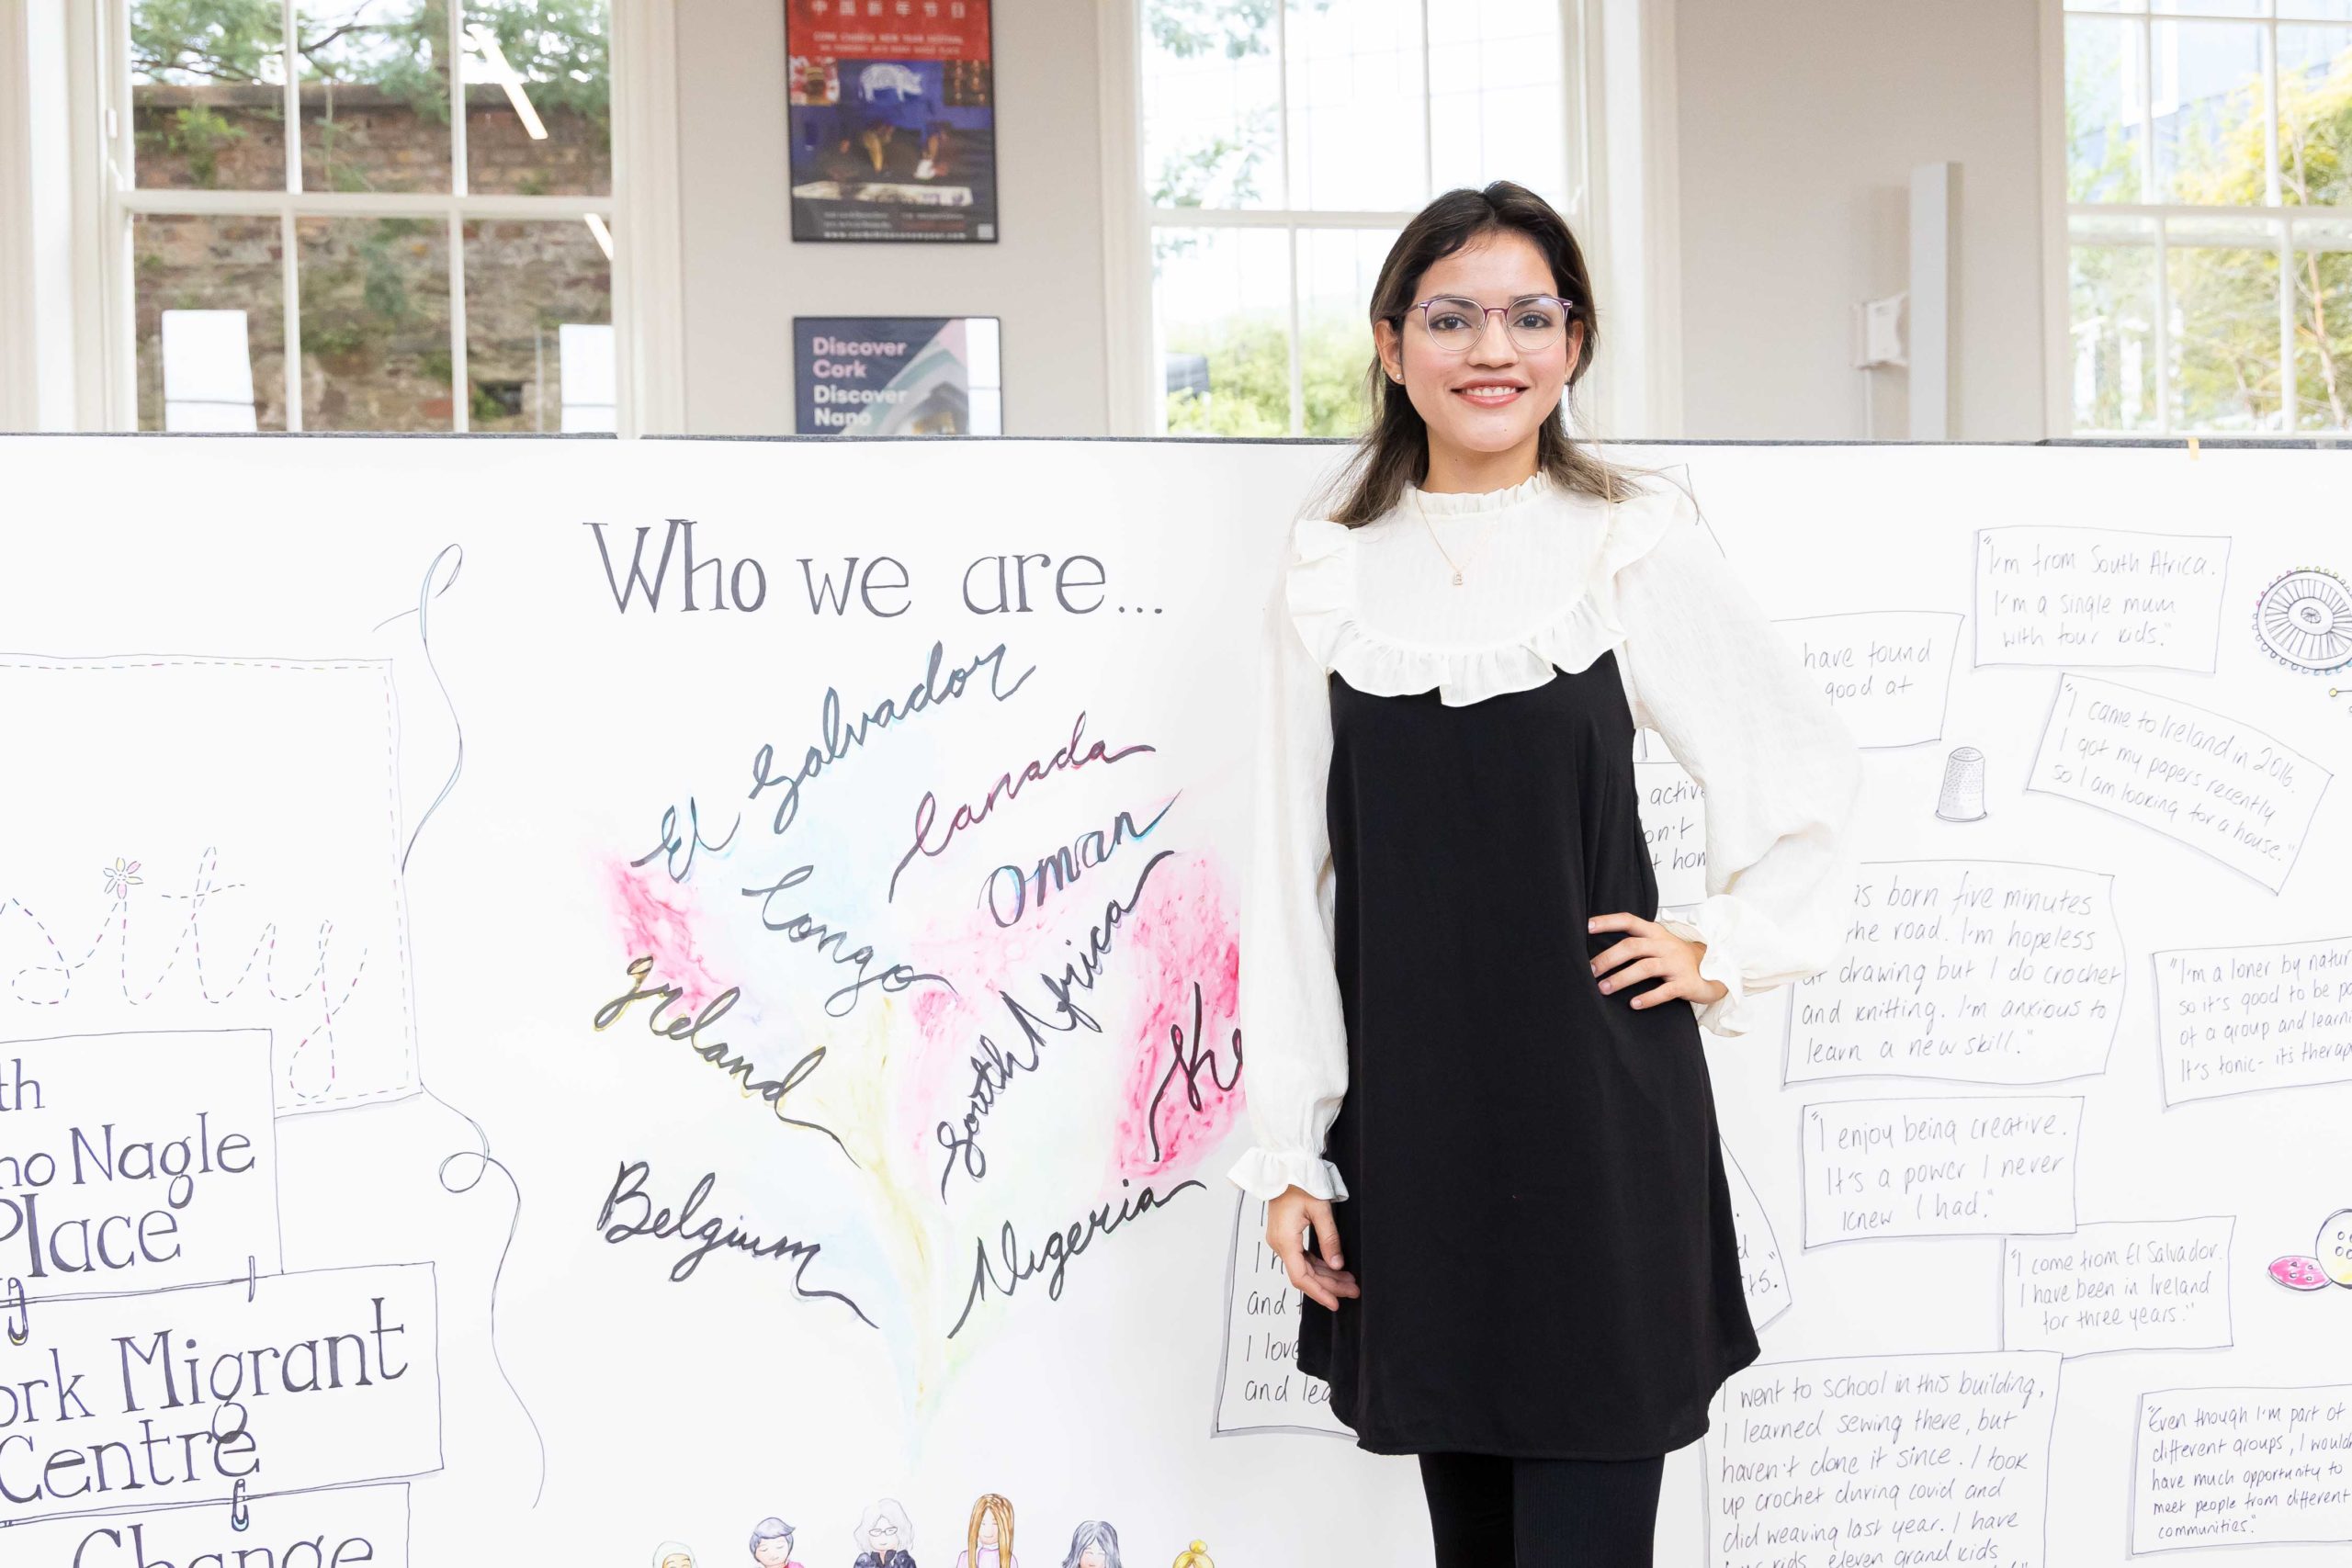 中国新年节日
CORK CHINESE NEW YEAR FESTIVAL
Discover
Cork
Discover
Nano
Who we are...
El Salvador
Canada
Oman
Congo
South Africa
Ireland
Ke
Belgium
Nigeria
sity
th
no Nagle
Place
ork Migrant
Centre
Change
have found
good at
"I'm from South Africa.
I'm a single mum
with four kids."
"I came to Ireland in 2016.
I got my papers recently
so I am looking for a house."
active
on't
t hom
as born five minutes
the road. I'm hopeless
at drawing but I do crochet
and knitting. I'm anxious to
learn a new skill."
"I'm a loner by natur
so it's good to be pa
of a group and learni
It's tonic- it's therap
"I enjoy being creative.
It's a power I never
knew I had."
"I come from El Salvador.
I have been in Ireland
for three years."
and
I love
and lea
ts."
I went to school in this building,
I learned sewing there, but
haven't done it since. I took
up crochet during covid and
did weaving last year. I have
kids, eleven grand kids
"Even though I'm part of
different groups, I would
have much opportunity to
meet people from different
communities."